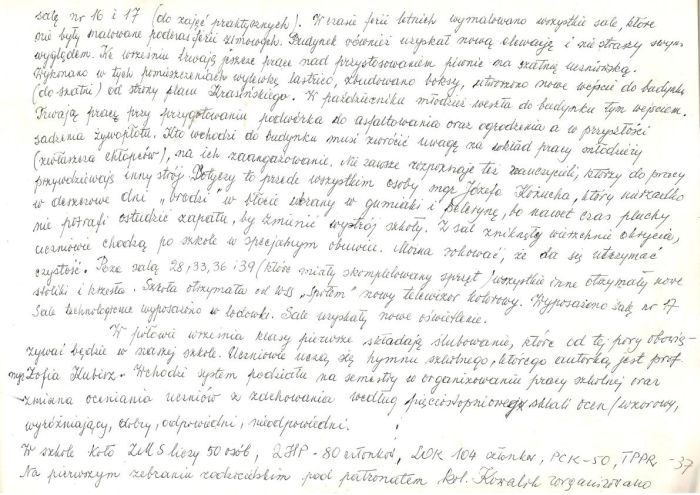 salę nr 16 i 17 (do zajęć praktycznych). W czasie ferii letnich wymalowano wszystkie sale, które
nie były malowane podczas ferii zimowych. Budynek również uzyskał nową elewację i nie straszy swym
wyglądem. We wrześniu trwają jeszcze prace nad przystosowaniem piwnic na szatnię uczniowską.
Wykonano w tych pomieszczeniach wylewkę lastrico, zbudowano boksy, utworzono nowe wejście do budynku
(do szatni) od strony placu Krasińskiego. W październiku młodzież weszła do budynku tym wejściem.
Trwają prace przy przygotowaniu podwórka do asfaltowania oraz ogrodzenia a w przyszłości
sadzenia żywopłotu. Kto wchodzi do budynku musi zwrócić uwagę na wkład pracy młodzieży
(zwłaszcza chłopców), na ich zaangażowanie. Nie zawsze rozpoznaje też nauczycieli, którzy do pracy
przywdziewają inny strój. Dotyczy to przede wszystkim osoby mgr Józefa Kożucha, który nierzadko
w deszczowe dni „brodzi" w błocie ubrany w gumiaki i pelerynę, bo nawet czas pluchy
nie potrafi ostudzić zapału, by zmienić wystrój szkoły. Z sal zniknęły wierzchnie okrycia,
uczniowie chodzą po szkole w specjalnym obuwiu. Można rokować, że da się utrzymać
czystość. Poza salą 28, 33, 36 i 39 (które miały skompletowany sprzęt) wszystkie inne otrzymały nowe
stoliki i krzesła. Szkoła otrzymała od WSS „Społem" nowy telewizor kolorowy. Wyposażono salę nr 17
Sale technologiczne wyposażono w lodówki. Sale uzyskały nowe oświetlenie.
W połowie września klasy pierwsze składają ślubowanie, które od tej pory obowią-
zywać będzie w naszej szkole. Uczniowie uczą się hymnu szkolnego, którego autorką jest prof
mgr Zofia Klubisz. Wchodzi system podziału na semestry w organizowaniu pracy szkolnej oraz
zmiana oceniania uczniów z zachowania według pięciostopniowej skali ocen (wzorowy,
wyróżniający, dobry, odpowiedni, nieodpowiedni.
W szkole koło ZMS liczy 50 osób, ZHP - 80 członków, LOK 104 członków, PCK - 50, TPPR - 37
Na pierwszym zebraniu rodzicielskim pod patronatem kol. Kowalik zorganizowano